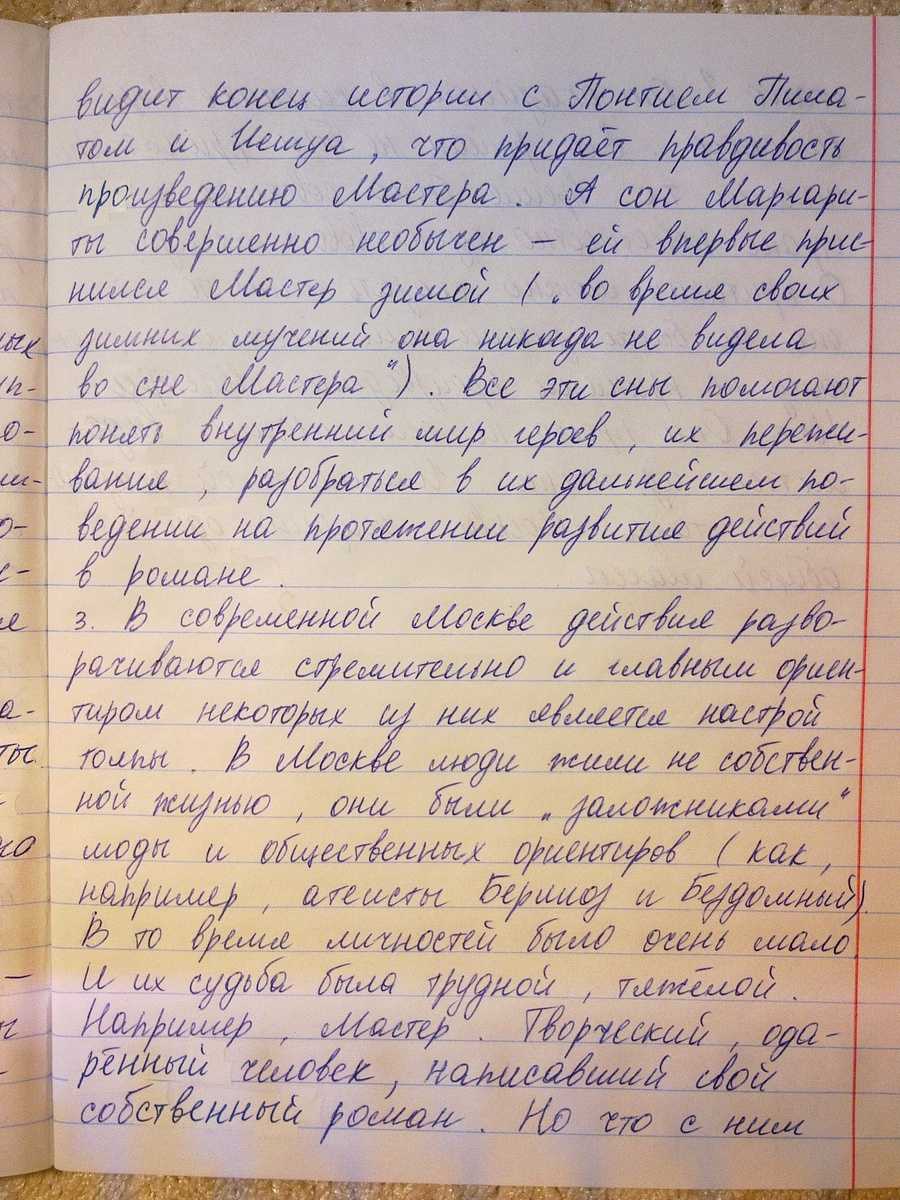 видит конец истории с Понтием Пила-
том и Иешуа, что придаёт правдивость
произведению Мастера. А сон Маргари-
ты совершенно необычен – ей впервые прис-
нился Мастер зимой („во время своих
зимних мучений она никогда не видела
во сне Мастера“). Все эти сны помогают
понять внутренний мир героев, их пережи-
вания, разобраться в их дальнейшем по-
ведении на протяжении развития действий
в романе.
3. В современной Москве действия разво-
рачиваются стремительно и главным ориен-
тиром некоторых из них является настрой
толпы. В Москве люди жили не собствен-
ной жизнью, они были „заложниками“
моды и общественных ориентиров (как,
например, атеисты Берлиоз и Бездомный).
В то время личностей было очень мало.
И их судьба была трудной, тяжёлой.
Например, Мастер. Творческий, ода-
рённый человек, написавший свой
собственный роман. Но что с ним
ных
уп-
о-
о-
а-
ты.